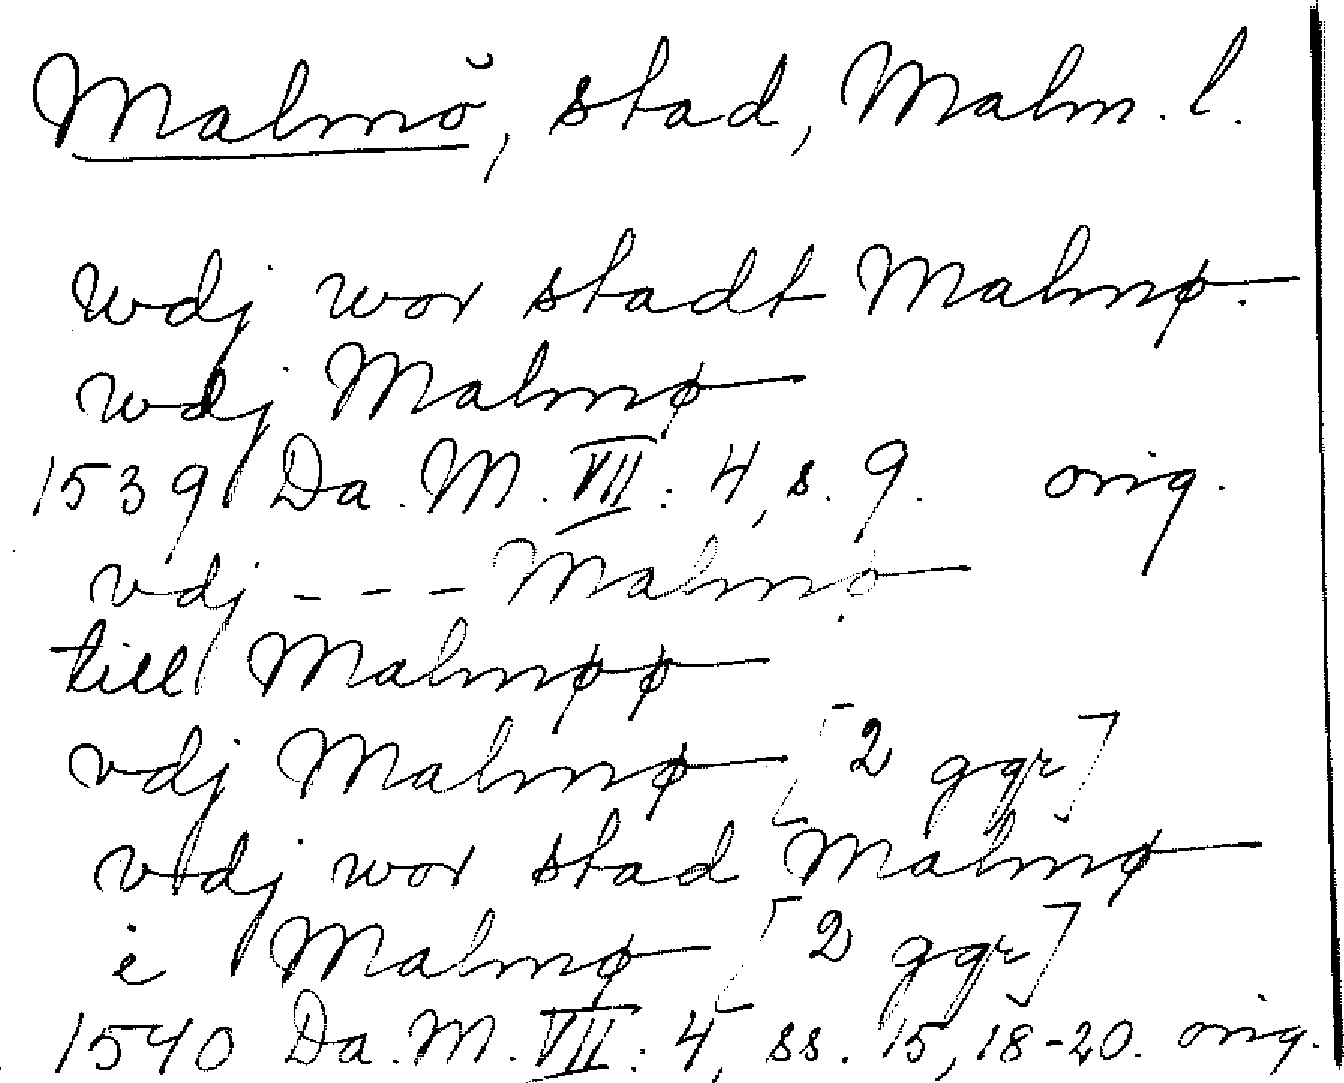 Malmö, stad, Malm. l.
wdj wor stadt Malmø.
wdj Malmø
1539 Da. M. VII: 4, s. 9. orig.
vdj --- Malmø
till Malmøø
vdj Malmø [2 ggr]
vdj wor stad Malmø
i Malmø [2 ggr]
1540 Da. M. VII: 4, ss. 15, 18-20. orig.